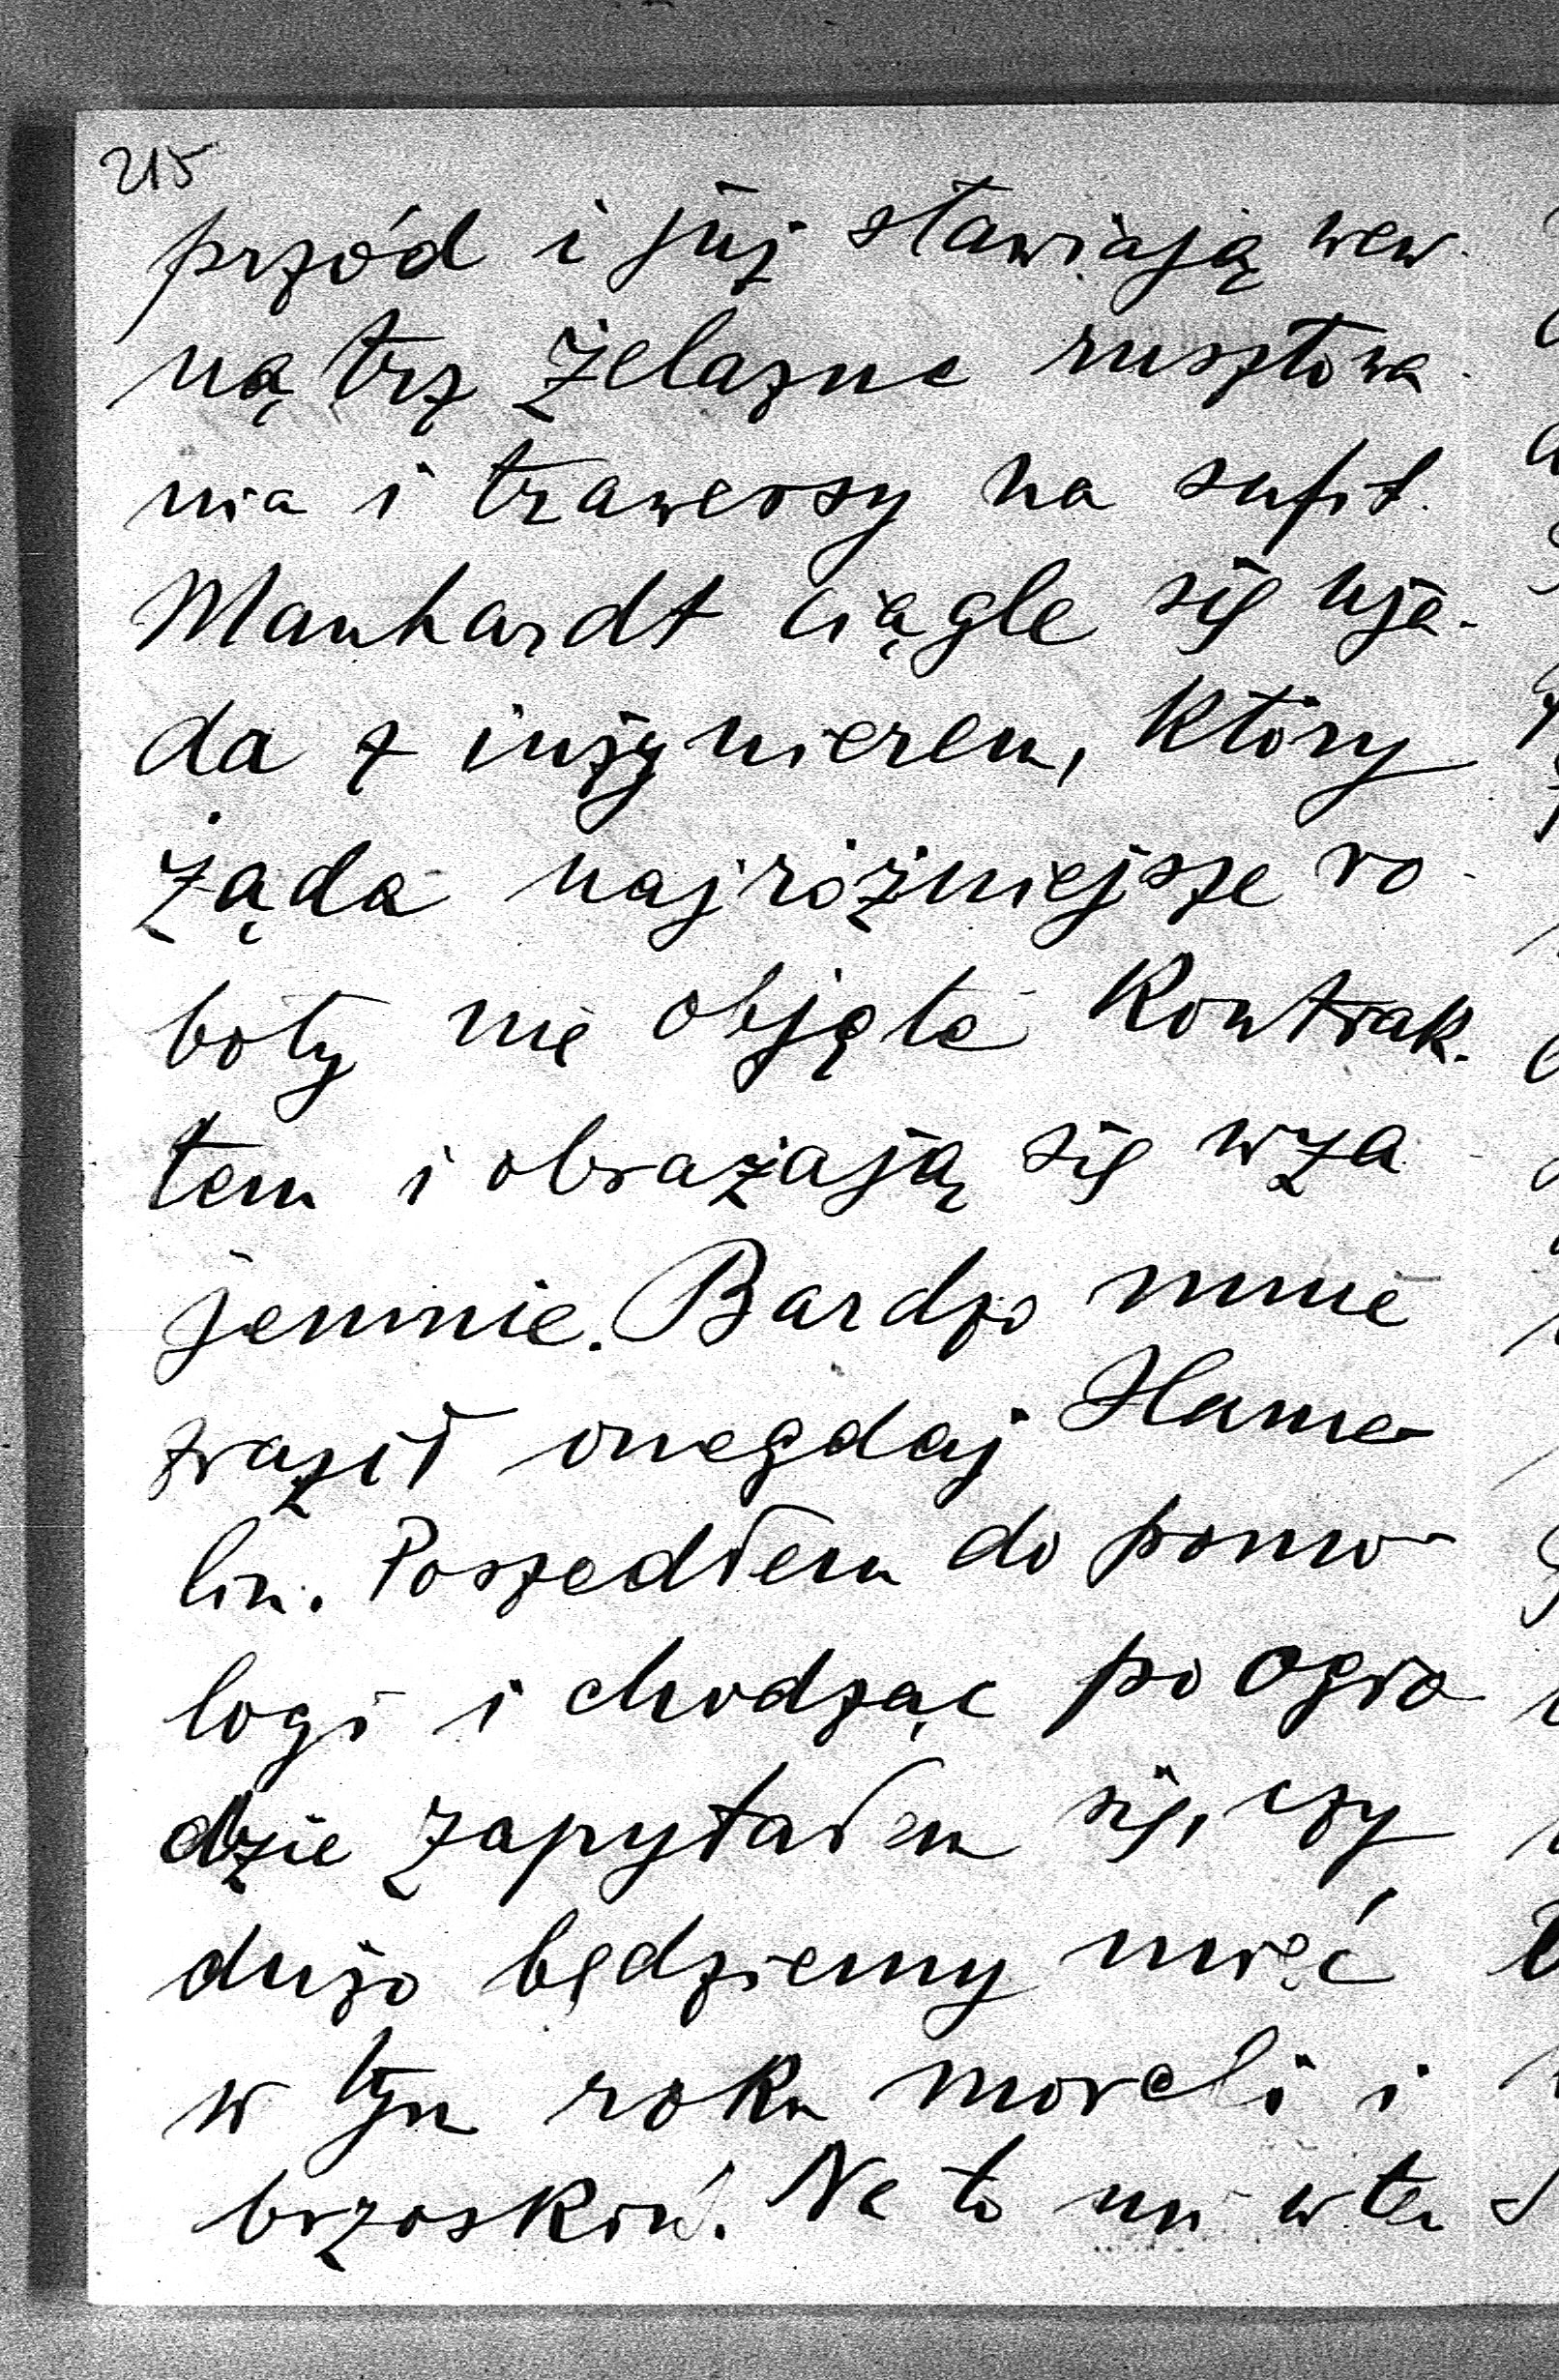 215
przód i już stawiają wew-
nątrz żelazne rusztowa-
nia i trawersy na sufit.
Manhardt ciągle się uja-
da z inżynierem, który
żąda najróżniejsze ro-
boty nie objęte kontrak-
tem i obrażają się wza
jemnie. Bardzo mnie
zraził onegdaj Hame-
lin. Poszedłem do pomo-
logi i chodząc po ogro-
dzie zapytałem się, czy
dużo będziemy mieć
w tym roku moreli i
brzoskwiń. Na to mi w ten